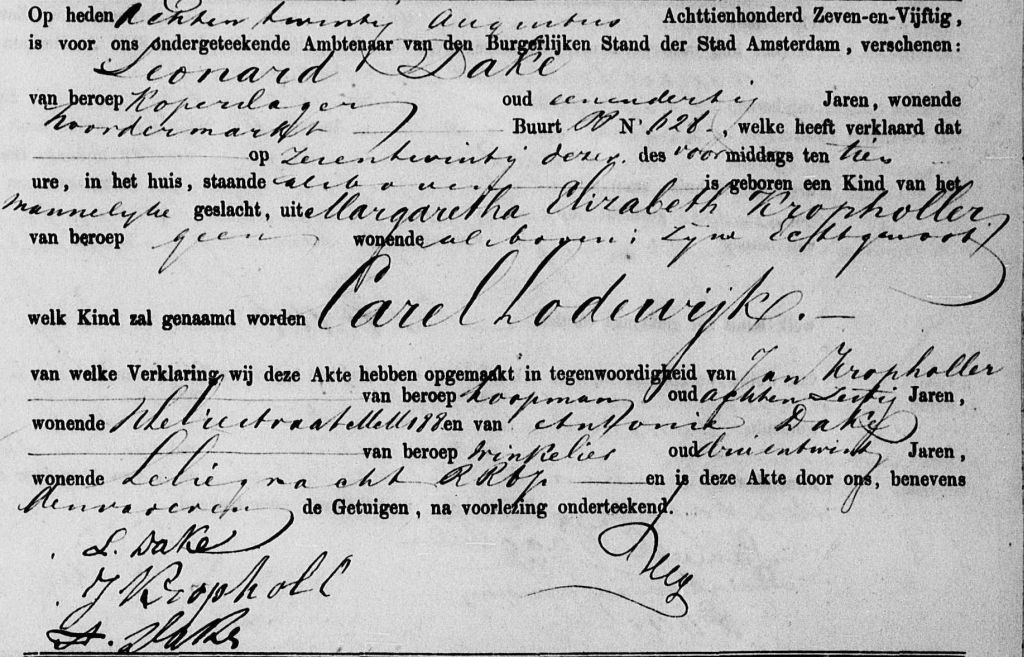 Op heden achten twintig Augustus Achttienhonderd Zeven-en-Vijftig,
is voor ons ondergeteekende Ambtenaar van den Burgerlijken Stand der Stad Amsterdam, verschenen:
Leonard Dake
van beroep Koperslager oud eenendertig Jaren, wonende
Noordermarkt Buurt PP No 628, welke heeft verklaard dat
op zevenentwintig dezer des voormiddags ten tien
ure, in het huis, staande als boven is geboren een Kind van het
Mannelijke geslacht, uit Margaretha Elizabeth Kropholler
van beroep geen wonende als boven; zijne Echtgenoot
welk Kind zal genaamd worden Carel Lodewijk.
van welke Verklaring wij deze Akte hebben opgemaakt in tegenwoordigheid van Jan Kropholler
van beroep Koopman oud achten Jaren,
wonende en van Antonie Dake
van beroep Winkelier oud drieentwintig Jaren,
wonende Leliegracht en is deze Akte door ons, benevens
de Getuigen, na voorlezing onderteekend.
L. Dake
J Kropholl
A. Dake